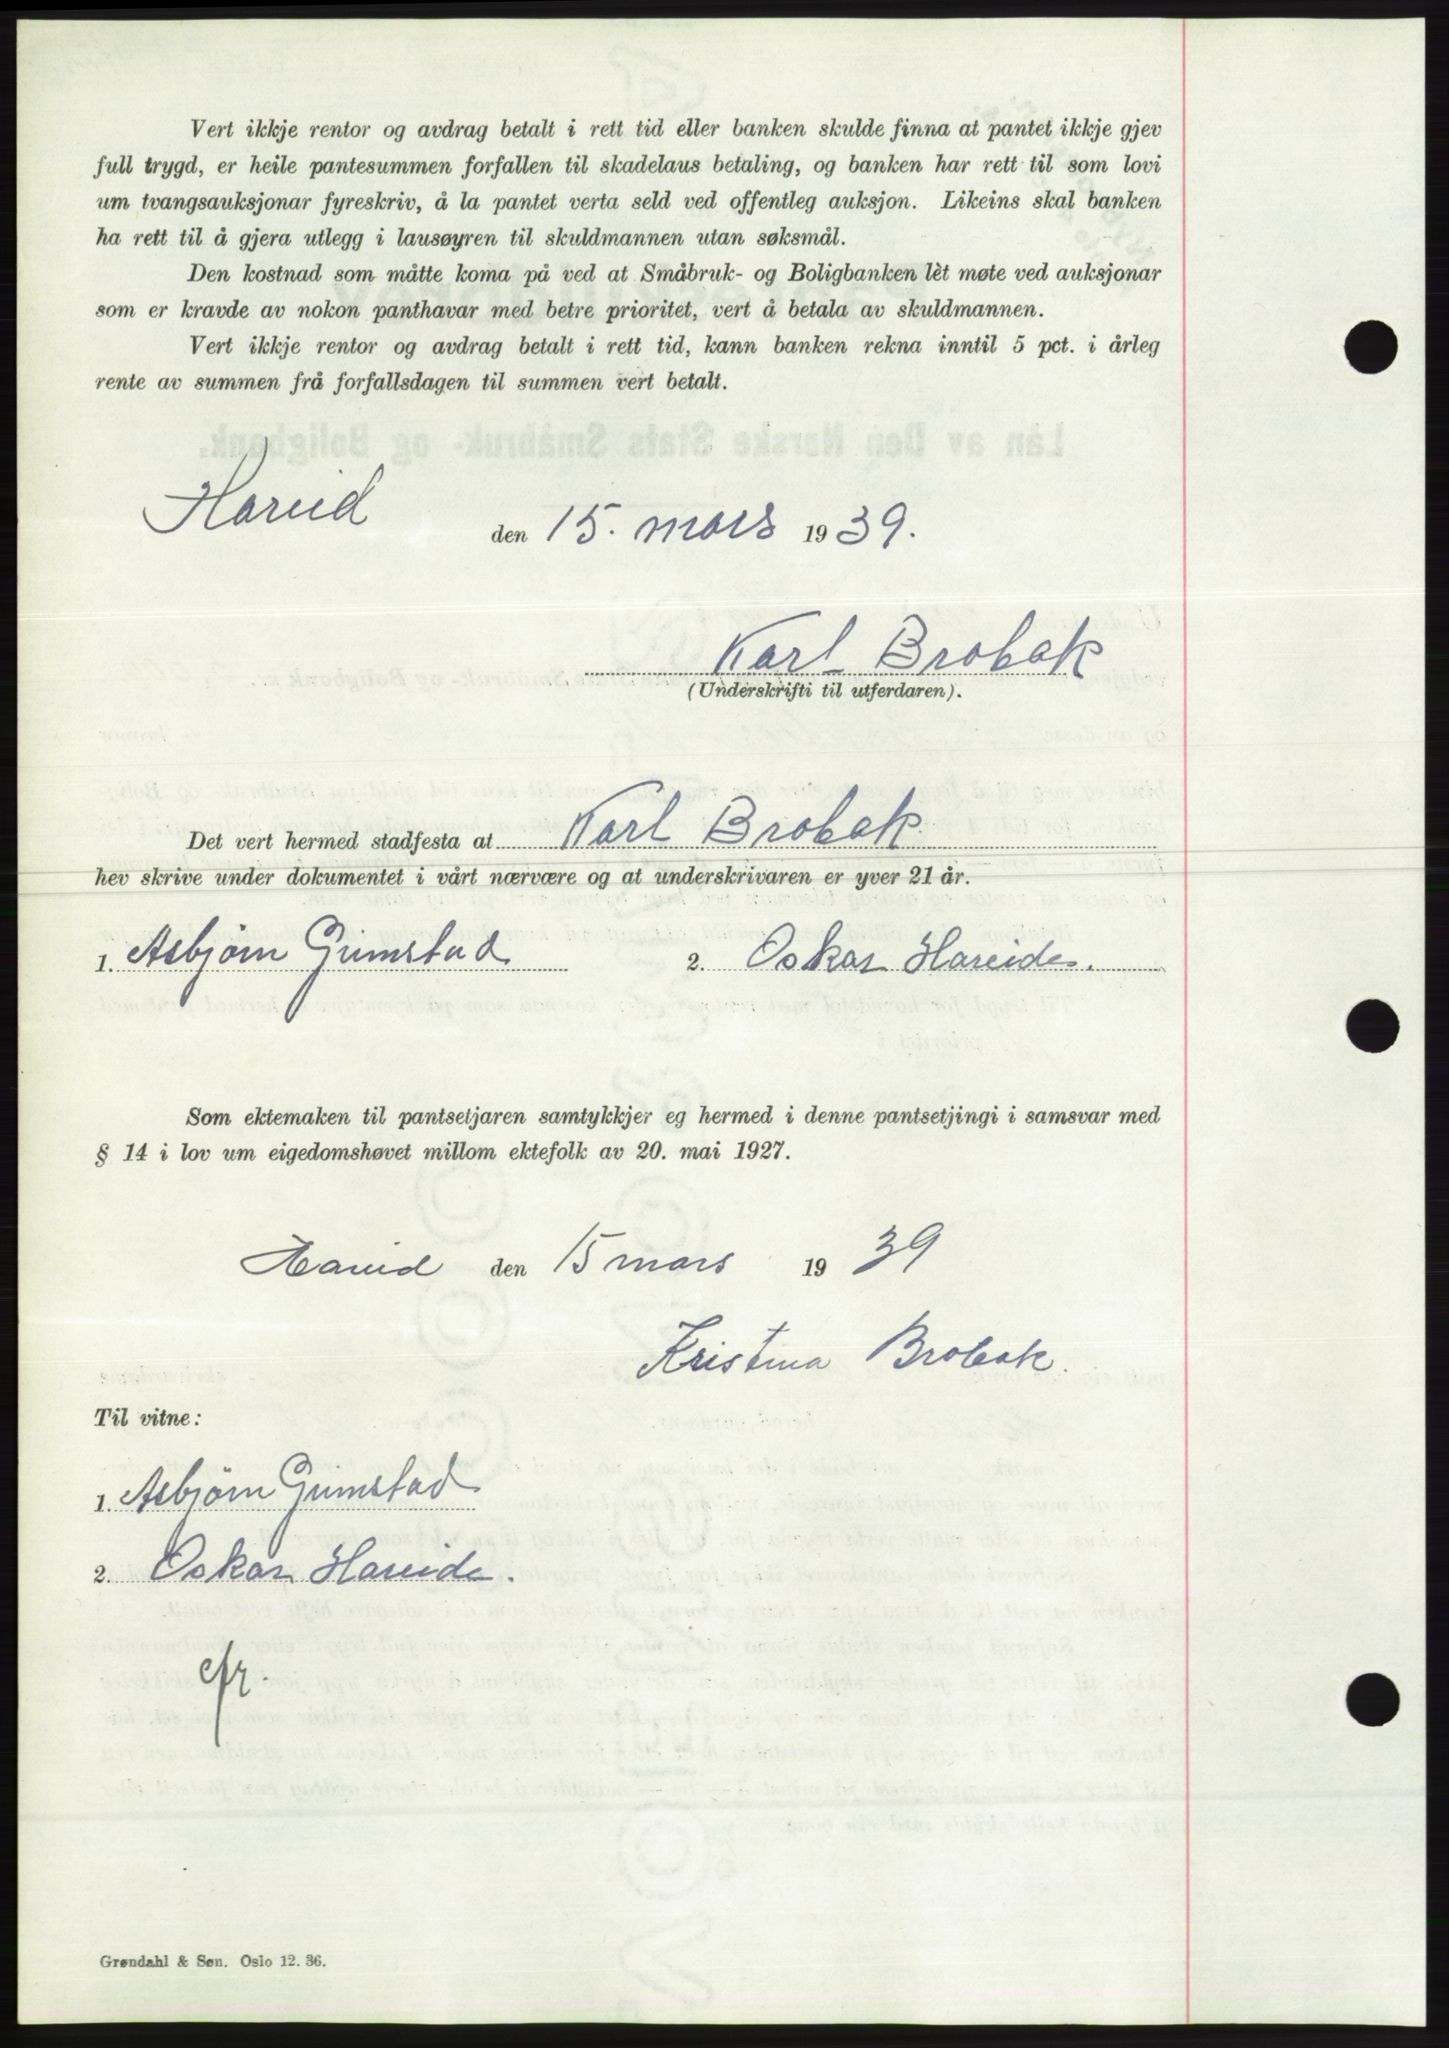 Vert ikkje rentor og avdrag betalt i rett tid eller banken skulde finna at pantet ikkje gjev
full trygd, er heile pantesummen forfallen til skadelaus betaling, og banken har rett til som lovi
um tvangsauksjonar fyreskriv, å la pantet verta seld ved offentleg auksjon. Likeins skal banken
ha rett til å gjera utlegg i lausøyren til skuldmannen utan søksmål.
Den kostnad som måtte koma på ved at Småbruk- og Boligbanken lèt møte ved auksjonar
som er kravde av nokon panthavar med betre prioritet, vert å betala av skuldmannen.
Vert ikkje rentor og avdrag betalt i rett tid, kann banken rekna inntil 5 pct. i årleg
rente av summen frå forfallsdagen til summen vert betalt.
Hareid den 15. mars 1939.
Karl Brobak
(Underskrifti til utferdaren).
Det vert hermed stadfesta at Karl Brobak
hev skrive under dokumentet i vårt nærvære og at underskrivaren er yver 21 år.
1. Asbjørn Grimstad 2. Oskar Hareide.
Som ektemaken til pantsetjaren samtykkjer eg hermed i denne pantsetjingi i samsvar med
§ 14 i lov um eigedomshøvet millom ektefolk av 20. mai 1927.
Hareid den 15 mars 1939
Kristina Brobak.
Til vitne:
1. Asbjørn Grimstad
2. Oskar Hareide.
cfr.
Grøndahl & Søn. Oslo 12. 36.